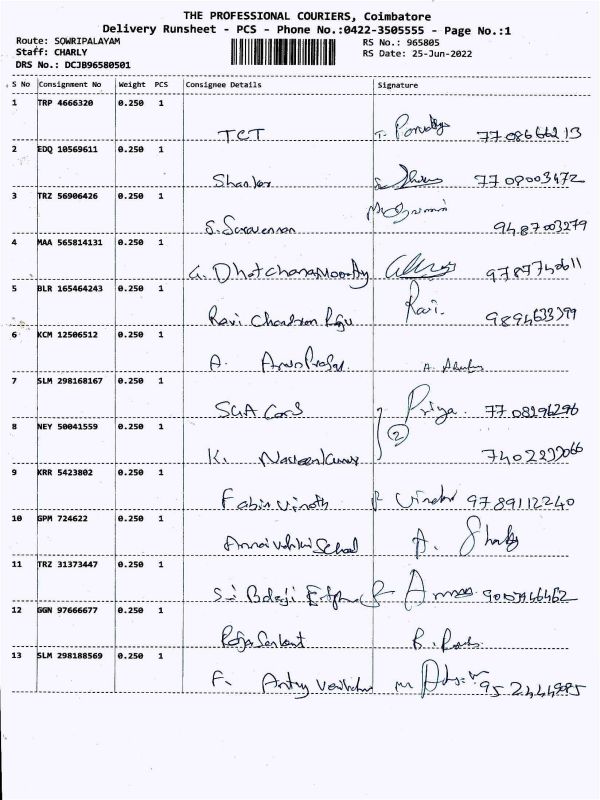 THE PROFESSIONAL COURIERS, Coimbatore
Delivery Runsheet - PCS - Phone No.:0422-3505555 - Page No.:1
Route: SOWRIPALAYAM RS No.: 965805
Staff: CHARLY RS Date: 25-Jun-2022
DRS No.: DCJB96580501
S No Consignment No Weight PCS Consignee Details Signature
1 TRP 4666320 0.250 1
TCT 7708666213
2 EDQ 10569611 0.250 1
Shankar 7708003472
3 TRZ 56906426 0.250 1
S. Saravanan 9487003279
4 MAA 565814131 0.250 1
G. Dhatchanamoorthy 9787740611
5 BLR 165464243 0.250 1
Ravi Chandran Raju Ravi. 9894633399
6 KCM 12506512 0.250 1
A. ArunPrasad
7 SLM 298168167 0.250 1
SGA Cars Priya. 7708296296
8 NEY 50041559 0.250 1
K. Naveenkumar 2 7402233066
9 KRR 5423802 0.250 1
Fabin Vinoth 9789112240
10 GPM 724622 0.250 1
School A.
11 TRZ 31373447 0.250 1
Sri Balaji
12 GGN 97666677 0.250 1
R.
13 SLM 298188569 0.250 1
F. Antny